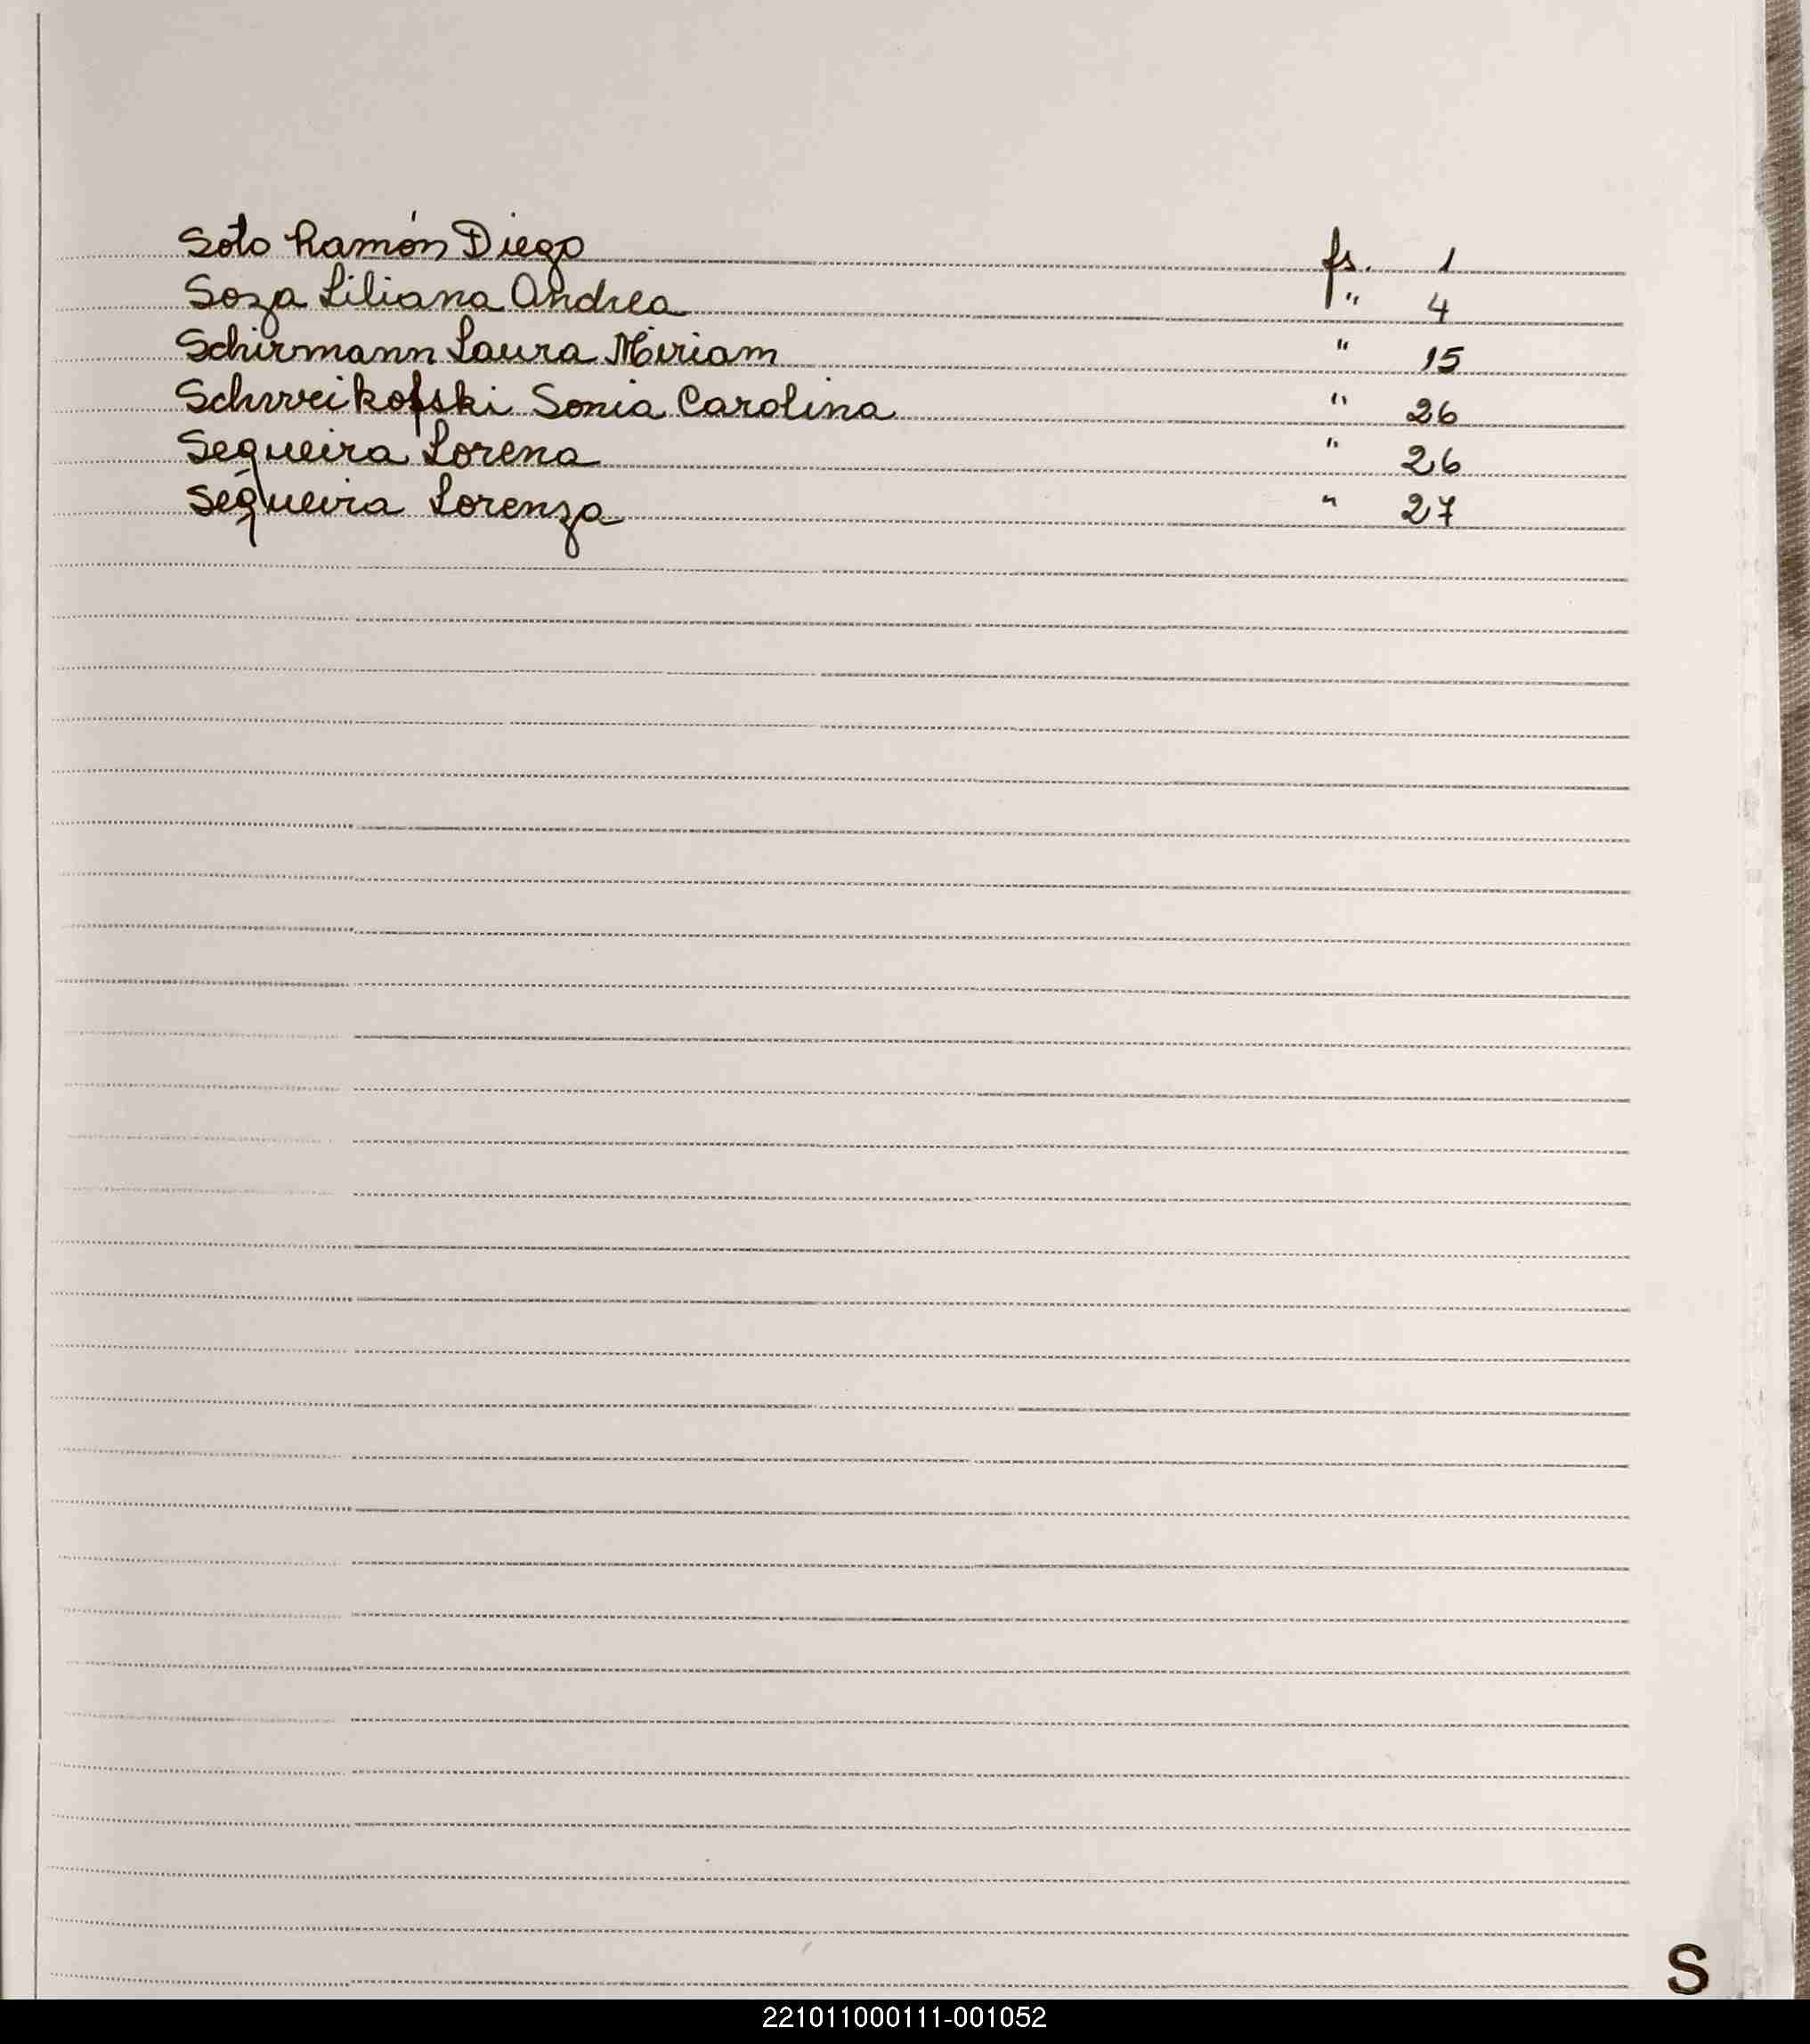 Soto Ramón Diego fs. 1
Soza Liliana Andrea " 4
Schirmann Laura Miriam " 15
Schweikofski Sonia Carolina " 26
Sequeira Lorena " 26
Sequeira Lorenza " 27
S
221011000111-001052